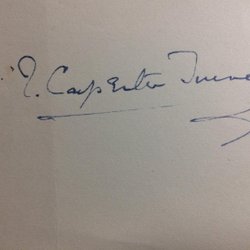 Carpenter Turner